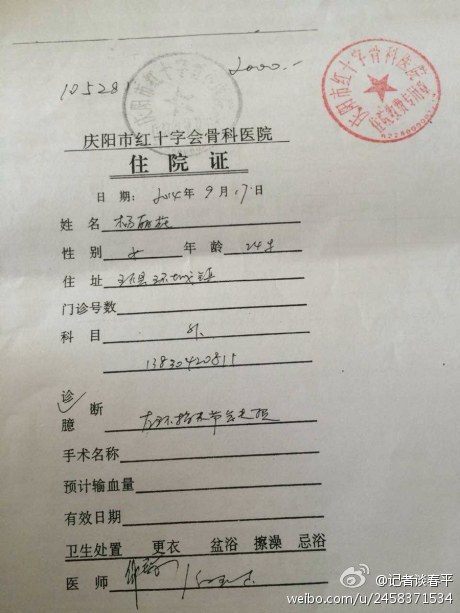 10528
2000.-
庆阳市红十字骨科医院
庆阳市红十字会骨科医院
住院证
日期: 2014年9月17日
姓名
性别 女 年龄 24岁
住址 环县环城镇
门诊号数
科目 外
13830420811
诊断
臆
手术名称
预计输血量
有效日期
卫生处置 更衣 盆浴 擦澡 忌浴
医师
@记者谈春平
weibo.com/u/2458371534